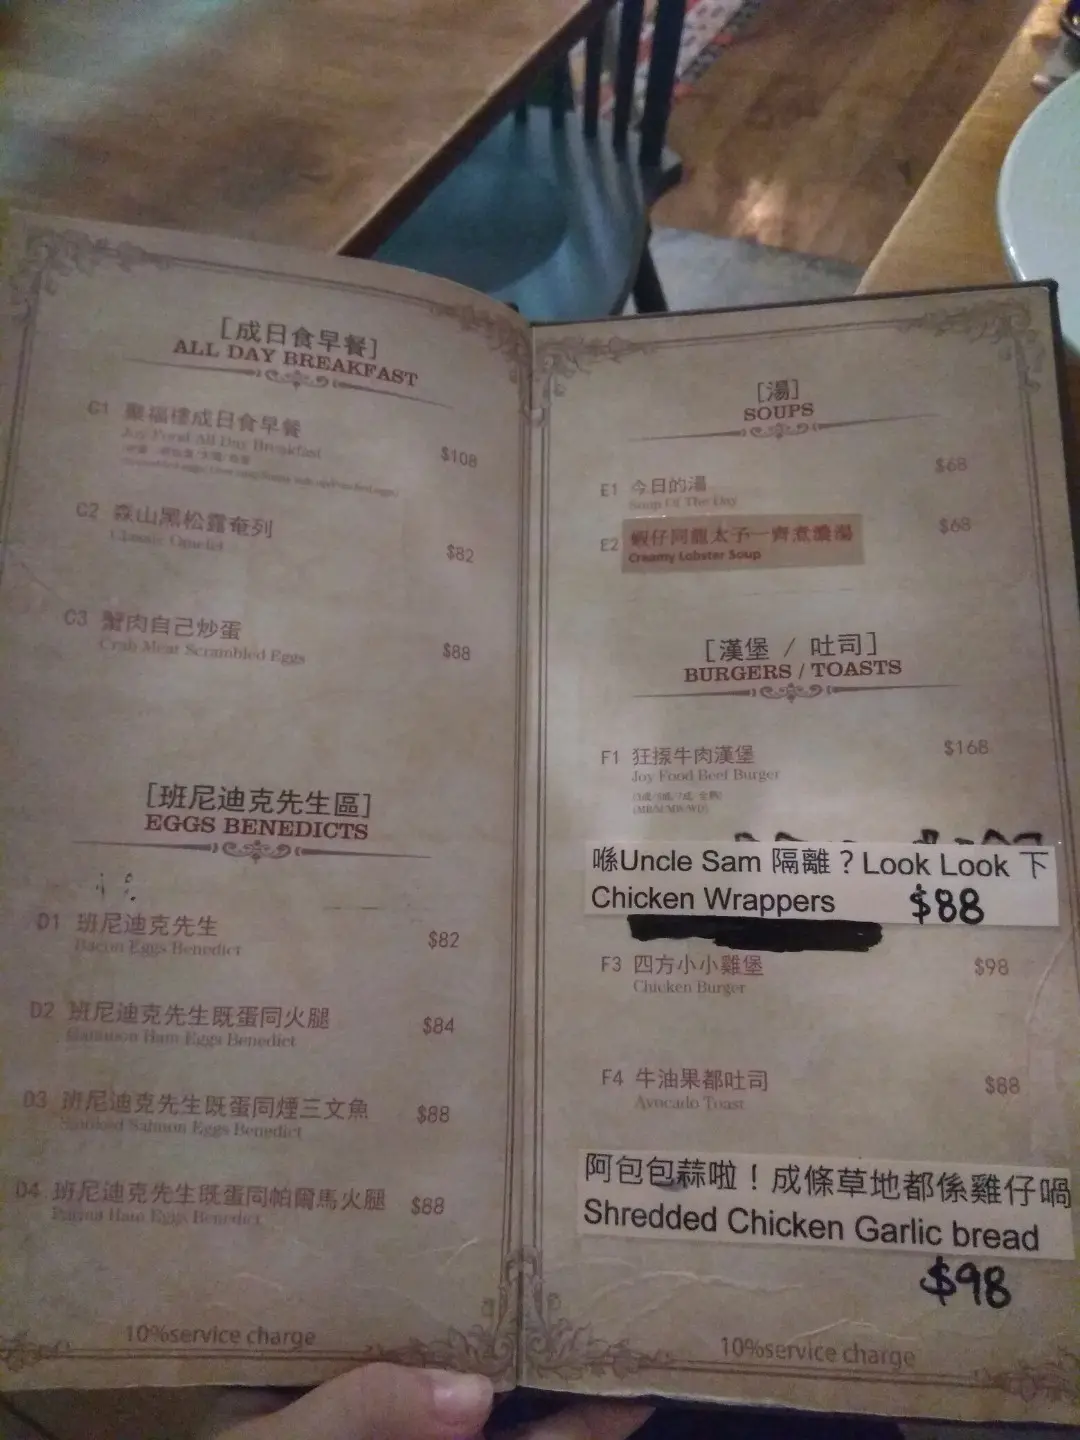 [成日食早餐]
ALL DAY BREAKFAST
C1 聚福樓成日食早餐
Joy Food All Day Breakfast
$108
C2 森山黑松露奄列
Classic Omelet
$82
C3 蟹肉自己炒蛋
Crab Meat Scrambled Eggs
$88
[班尼迪克先生區]
EGGS BENEDICTS
D1 班尼迪克先生
Bacon Eggs Benedict
$82
D2 班尼迪克先生既蛋同火腿
Gammon Ham Eggs Benedict
$84
D3 班尼迪克先生既蛋同煙三文魚
Smoked Salmon Eggs Benedict
$88
D4 班尼迪克先生既蛋同帕爾馬火腿
Parma Ham Eggs Benedict
$88
10%service charge
[湯]
SOUPS
E1 今日的湯
Soup Of The Day
$68
E2 蝦仔阿龍太子一齊煮濃湯
Creamy Lobster Soup
$68
[漢堡 / 吐司]
BURGERS / TOASTS
F1 狂揼牛肉漢堡
Joy Food Beef Burger
$168
喺Uncle Sam 隔離？Look Look 下
Chicken Wrappers $88
F3 四方小小雞堡
Chicken Burger
$98
F4 牛油果都吐司
Avocado Toast
$88
阿包包蒜啦！成條草地都係雞仔喎
Shredded Chicken Garlic bread
$98
10%service charge